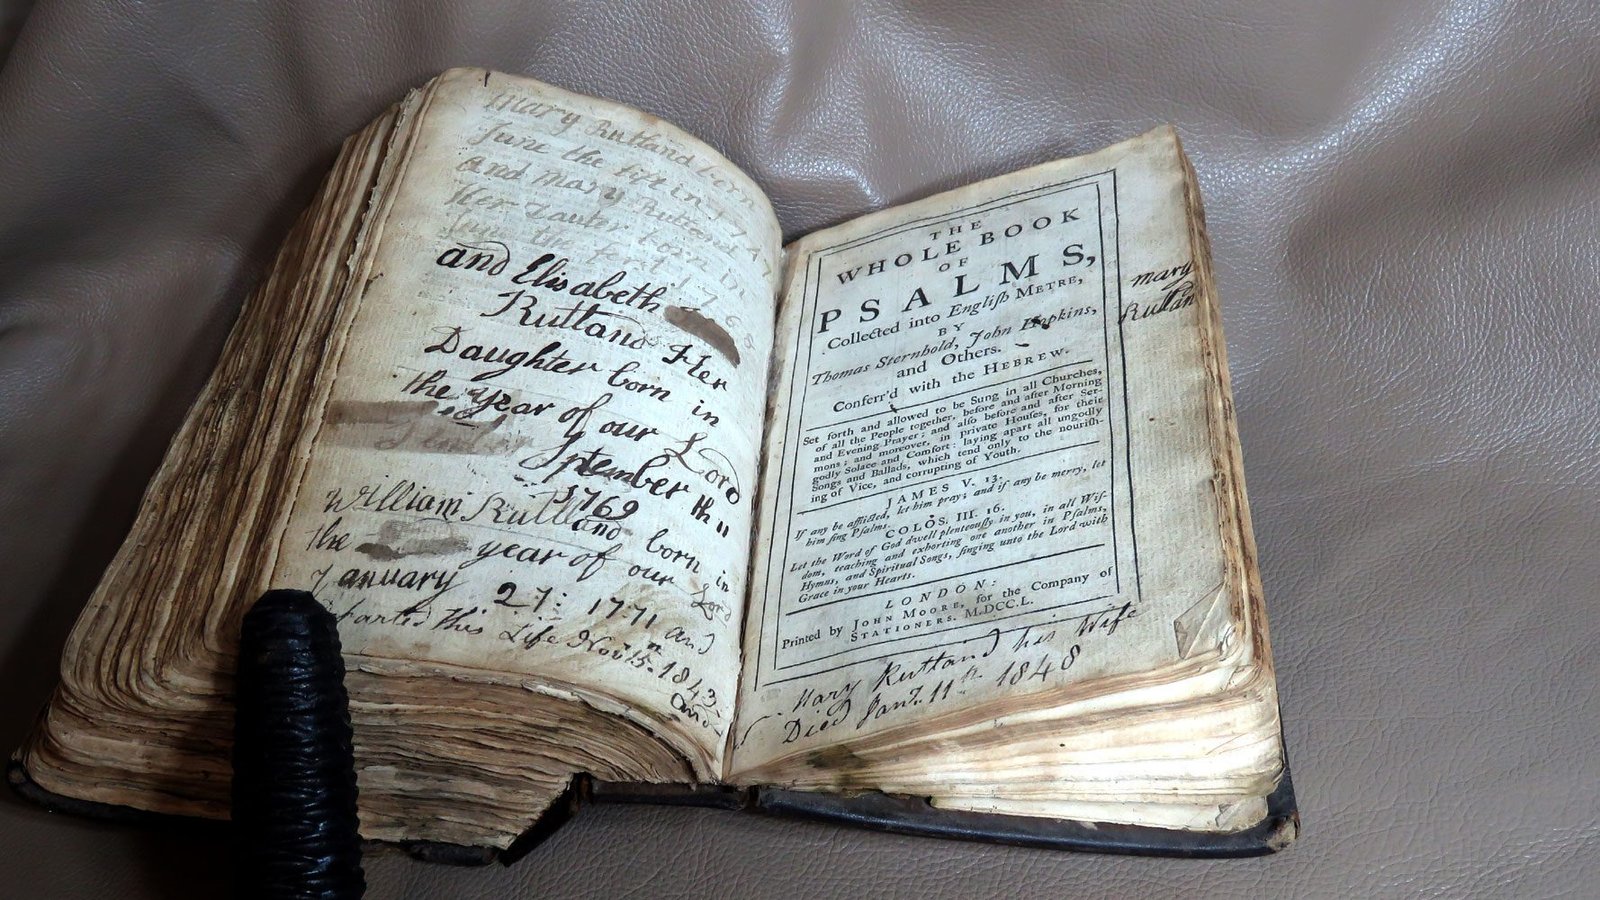 Mary Rutland born
June the fift in 1747
and Mary Rutland
Her Dauter born in
June the ferst 1768
and Elisabeth
Rutland Her
Daughter born in
the year of our Lord
September th 11
1769
William Rutland born in
the year of our Lord
January 27: 1771 and
parted this Life Novr 15th 1843.
and
THE
WHOLE BOOK
OF
PSALMS,
Collected into Engliſh METRE,
BY
Thomas Sternhold, John Hopkins,
and Others.
Conferr'd with the HEBREW.
Set forth and allowed to be Sung in all Churches,
of all the People together, before and after Morning
and Evening Prayer; and alſo before and after Ser-
mons; and moreover, in private Houſes, for their
godly Solace and Comfort: laying apart all ungodly
Songs and Ballads, which tend only to the nouriſh-
ing of Vice, and corrupting of Youth.
JAMES V. 13.
If any be afflicted, let him pray; and if any be merry, let
him ſing Pſalms.
COLOS. III. 16.
Let the Word of God dwell plenteouſly in you, in all Wiſ-
dom, teaching and exhorting one another in Pſalms,
Hymns, and Spiritual Songs, ſinging unto the Lord with
Grace in your Hearts.
LONDON:
Printed by JOHN MOORE, for the Company of
STATIONERS. M.DCC.L.
Mary Rutland his Wife
Died Jany. 11th 1848
mary
Rutlan